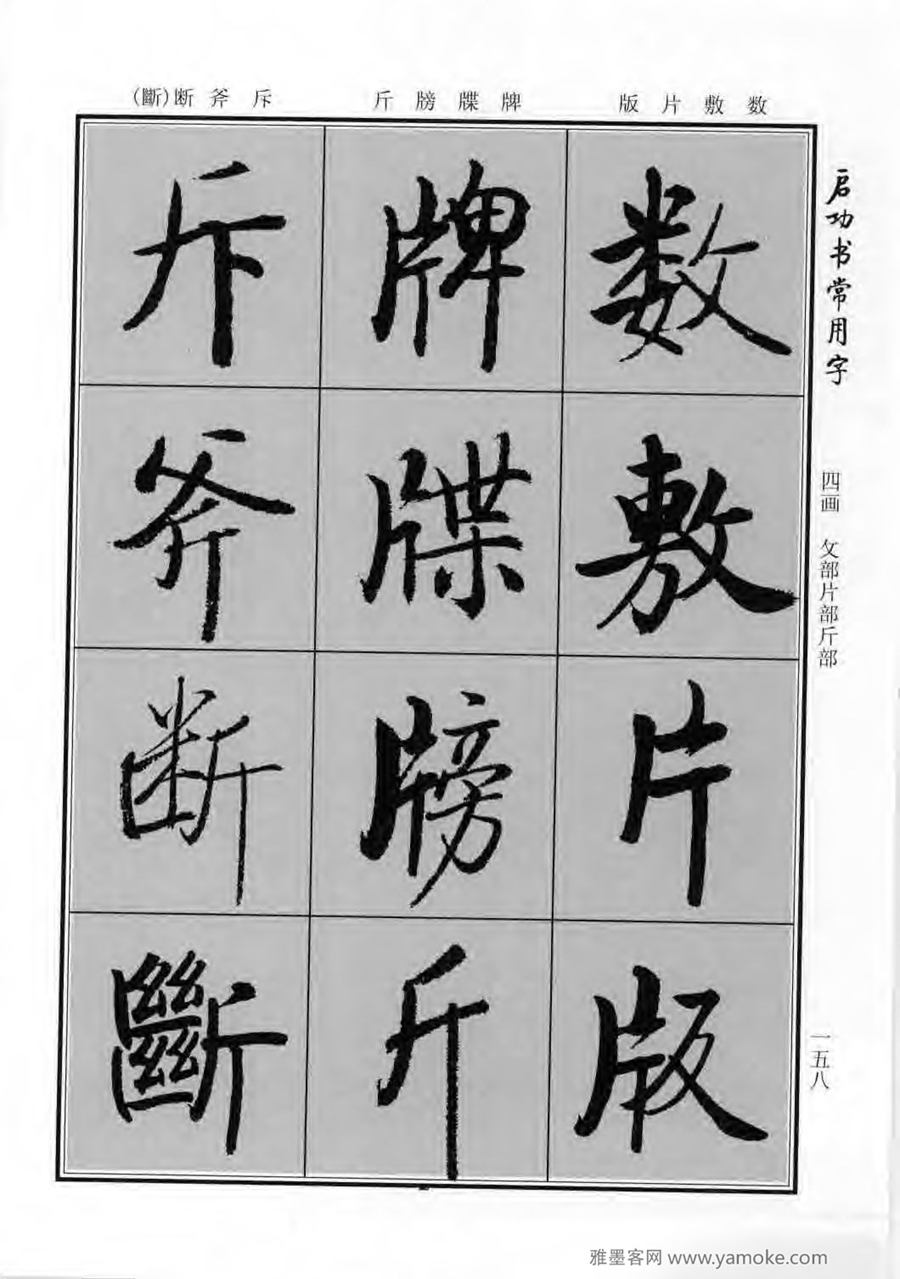 启功书常用字
四画 攵部片部斤部
一五八
数敷片版
牌牒牓斤
斥斧断(斷)
数
敷
片
版
牌
牒
牓
斤
斥
斧
断
斷
雅墨客网 www.yamoke.com